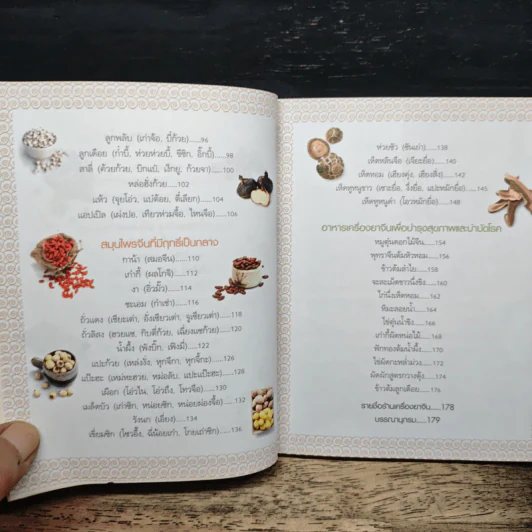 ลูกพลับ (เก่าจือ, ปี้ก้วย)......96
ลูกเดือย (ก๋ำบี้, ห่วยห่วยบี้, ซีซิก, อี๊กบี้)......98
สาลี่ (ด้วยก้วย, ปักแป๋, เง็กยู, ก้วยจา)......100
หล่อฮั่งก้วย......102
แห้ว (จุยโอ่ว, แบ่ต้อย, ตี่เลียก)......104
แอปเปิล (เผ่งปอ, เทียวห่วมจี้อ, ไหนจือ)......106
สมุนไพรจีนที่มีฤทธิ์เป็นกลาง
กาน้า (สมอจีน)......110
เก๋ากี้ (ผลโกจิ)......112
งา (อิ่วมั้ว)......114
ชะเอม (กำเช่า)......116
ถั่วแดง (เซียะเต่า, ถิ่งเซียะเต่า, จูเซียะเต่า)......118
ถั่วลิสง (ฮวยแซ, กิบตี่ก้วย, เฉี่ยงแซก้วย)......120
น้ำผึ้ง (พังบิ๊ก, เฟิงมี่)......122
แปะก้วย (เหล่งงั่ง, ทุกจีกา, ทุกจี้กะ)......126
แป๊ะฮะ (เหม่หะฮวย, หม่อลับ, แปะแป๊ะฮะ)......128
เผือก (โอ่วไน, โอ่วถึ่ง, โทวจือ)......130
เมล็ดบัว (เก่าซิก, หน่อยซิก, หน่อยผ่องจื้อ)......132
รังนก (เอี่ยง)......134
เซี่ยมซิก (ไซวอึ้ง, ฉี่น้อยเก่า, โกยเถ่าซิก)......136
ห่วยซัว (ซันเย่า)......138
เห็ดหลินจือ (เจียะยื้อ)......140
เห็ดหอม (เฮียงคู่ง, เฮียงสิ่ง)......142
เห็ดหูหนูขาว (เซาะยื้อ, งึ่งยื้อ, แปะหมักยื้อ)......145
เห็ดหูหนูดำ (โอวหมักยื้อ)......148
อาหารเครื่องยาจีนเพื่อบำรุงสุขภาพและบำบัดโรค
หมูตุ๋นดอกไม้จีน......154
พุทราจีนต้มหัวหอม......156
ข้าวต้มลำไย......158
จะละเม็ดขาวนึ่งขิง......160
ไก่นึ่งเห็ดหอม......162
หิมะลอยน้ำ......164
ไข่ตุ๋นน้ำขิง......166
เก๋ากี้ผัดหน่อไม้......168
ฟักทองต้มน้ำผึ้ง......170
ไข่ผัดกะหล่ำม่วง......172
ผัดผักสูตรกวางตุ้ง......174
ข้าวต้มลูกเดือย......176
รายชื่อร้านเครื่องยาจีน......178
บรรณานุกรม......179